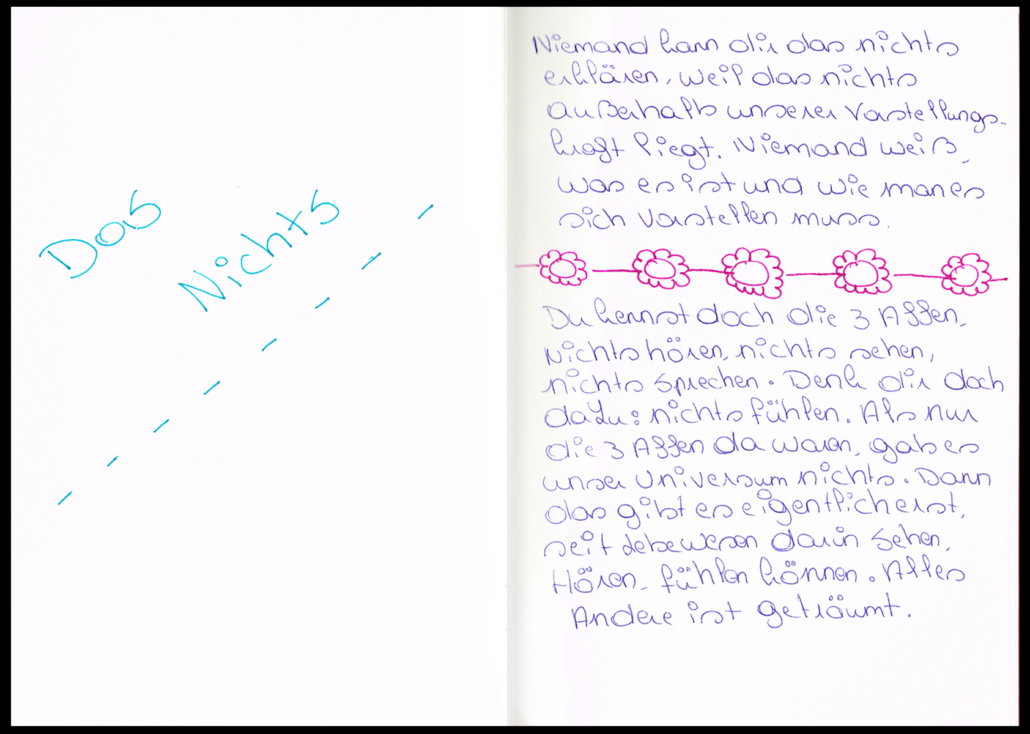 Das
Nichts
Niemand kann dir das nichts
erklären, weil das nichts
außerhalb unserer Vorstellungs-
kraft liegt. Niemand weiß,
was es ist und wie man es
sich vorstellen muss.
Du kennst doch die 3 Affen,
Nichts hören, nichts sehen,
nichts sprechen. Denk dir doch
dazu: nichts fühlen. Als nur
die 3 Affen da waren, gab es
unser Universum nichts. Dann
das gibt es eigentlich erst,
seit Lebewesen darin sehen,
Hören, fühlen können. Alles
Andere ist geträumt.